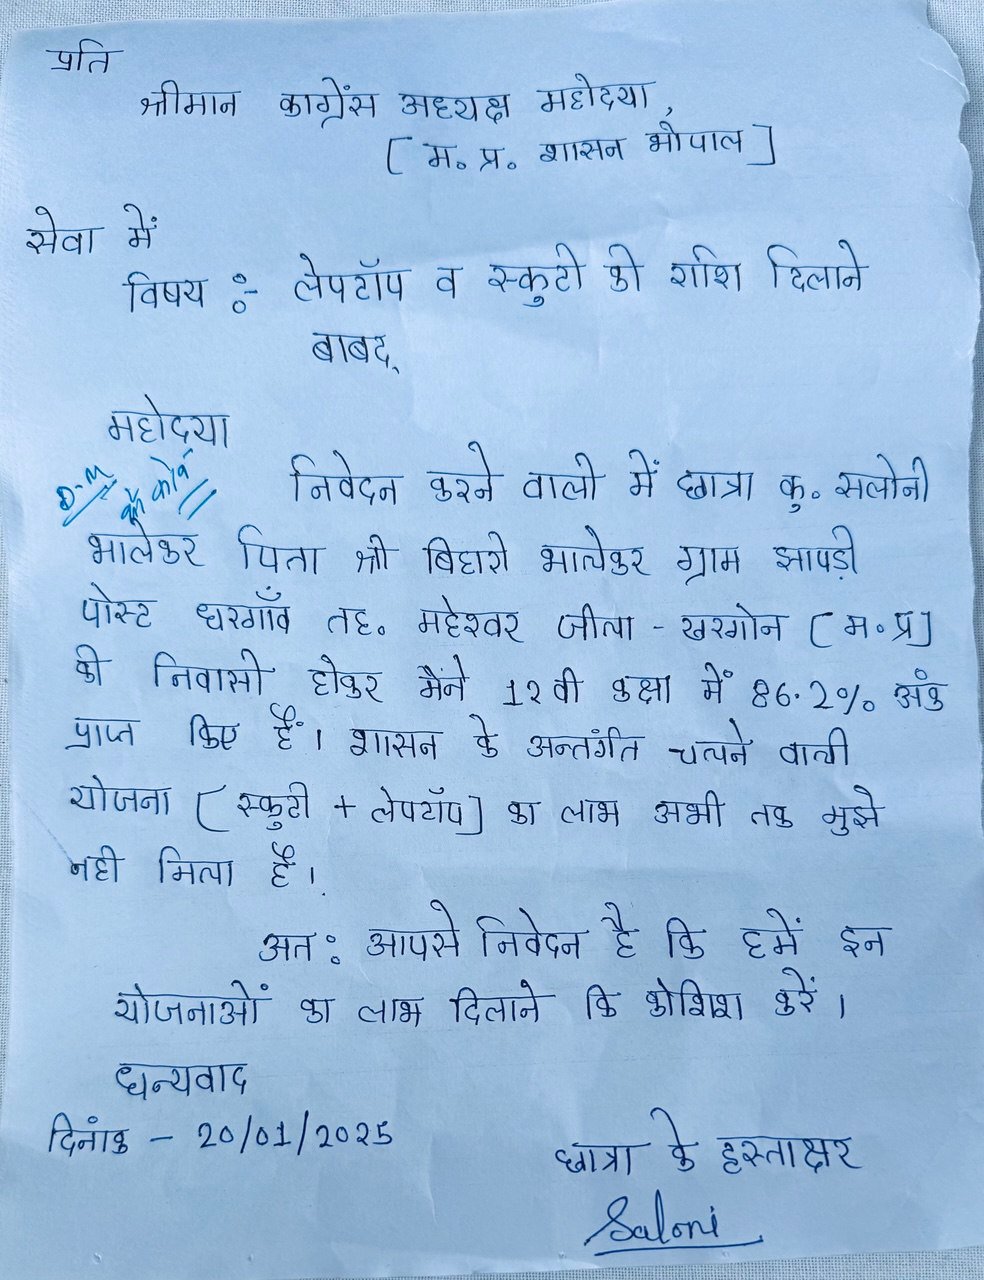 प्रति
श्रीमान काग्रेंस अध्यक्ष महोदया,
[म.प्र. शासन भोपाल]
सेवा में
विषय :- लेपटॉप व स्कुटी की राशि दिलाने
बाबद्
महोदया
D-M को कॉल
निवेदन करने वाली में छात्रा कु. सलोनी
भालेकर पिता श्री बिहारी भालेकर ग्राम झापड़ी
पोस्ट धरगाँव तह. महेश्वर जीला - खरगोन [म.प्र]
की निवासी होकर मैंने 12 वी कक्षा में 86.2% अंक
प्राप्त किए हैं। शासन के अन्तर्गत चलने वाली
योजना [स्कुटी + लेपटॉप] का लाभ अभी तक मुझे
नही मिला है।
अत: आपसे निवेदन है कि हमें इन
योजनाओं का लाभ दिलाने कि कोशिश करें।
धन्यवाद
दिनांक - 20/01/2025
छात्रा के हस्ताक्षर
Saloni